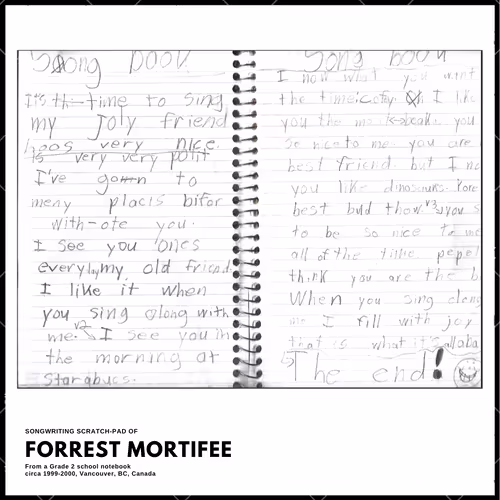 Song book
It's the time to sing
my joly friend
hoos very nice.
is very very polit
I've gown to
meny placis bifor
with-ote you.
I see you ones
every my old friend
I like it when
you sing along with
me. V2 I see you in
the morning at
Starabucs.
Song book
I now what you wint
the time I like
you the me you
so nice to me. you are
best friend. but I no
you like dinosaurs. Your
best bud thow. V3 you s
to be so nice to me
all of the time pepel
think you are the b
When you sing along
me I fill with joy
that is what it's all aba
The end!
SONGWRITING SCRATCH-PAD OF
FORREST MORTIFEE
From a Grade 2 school notebook
circa 1999-2000, Vancouver, BC, Canada